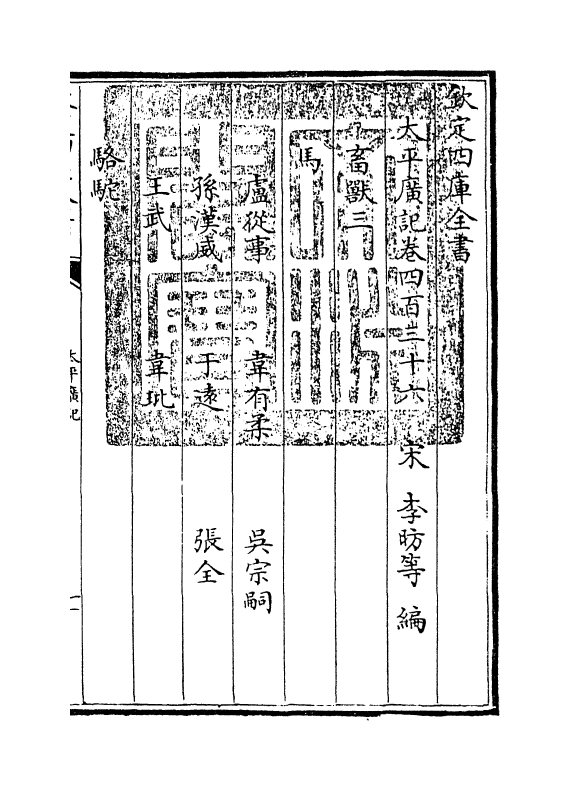 欽定四庫全書
太平廣記卷四百三十六 宋 李昉等 編
畜獸三
馬
盧從事 韋有柔 吳宗嗣
孫漢威 于遠 張全
王武 韋玭
駱駝
太平廣記
一